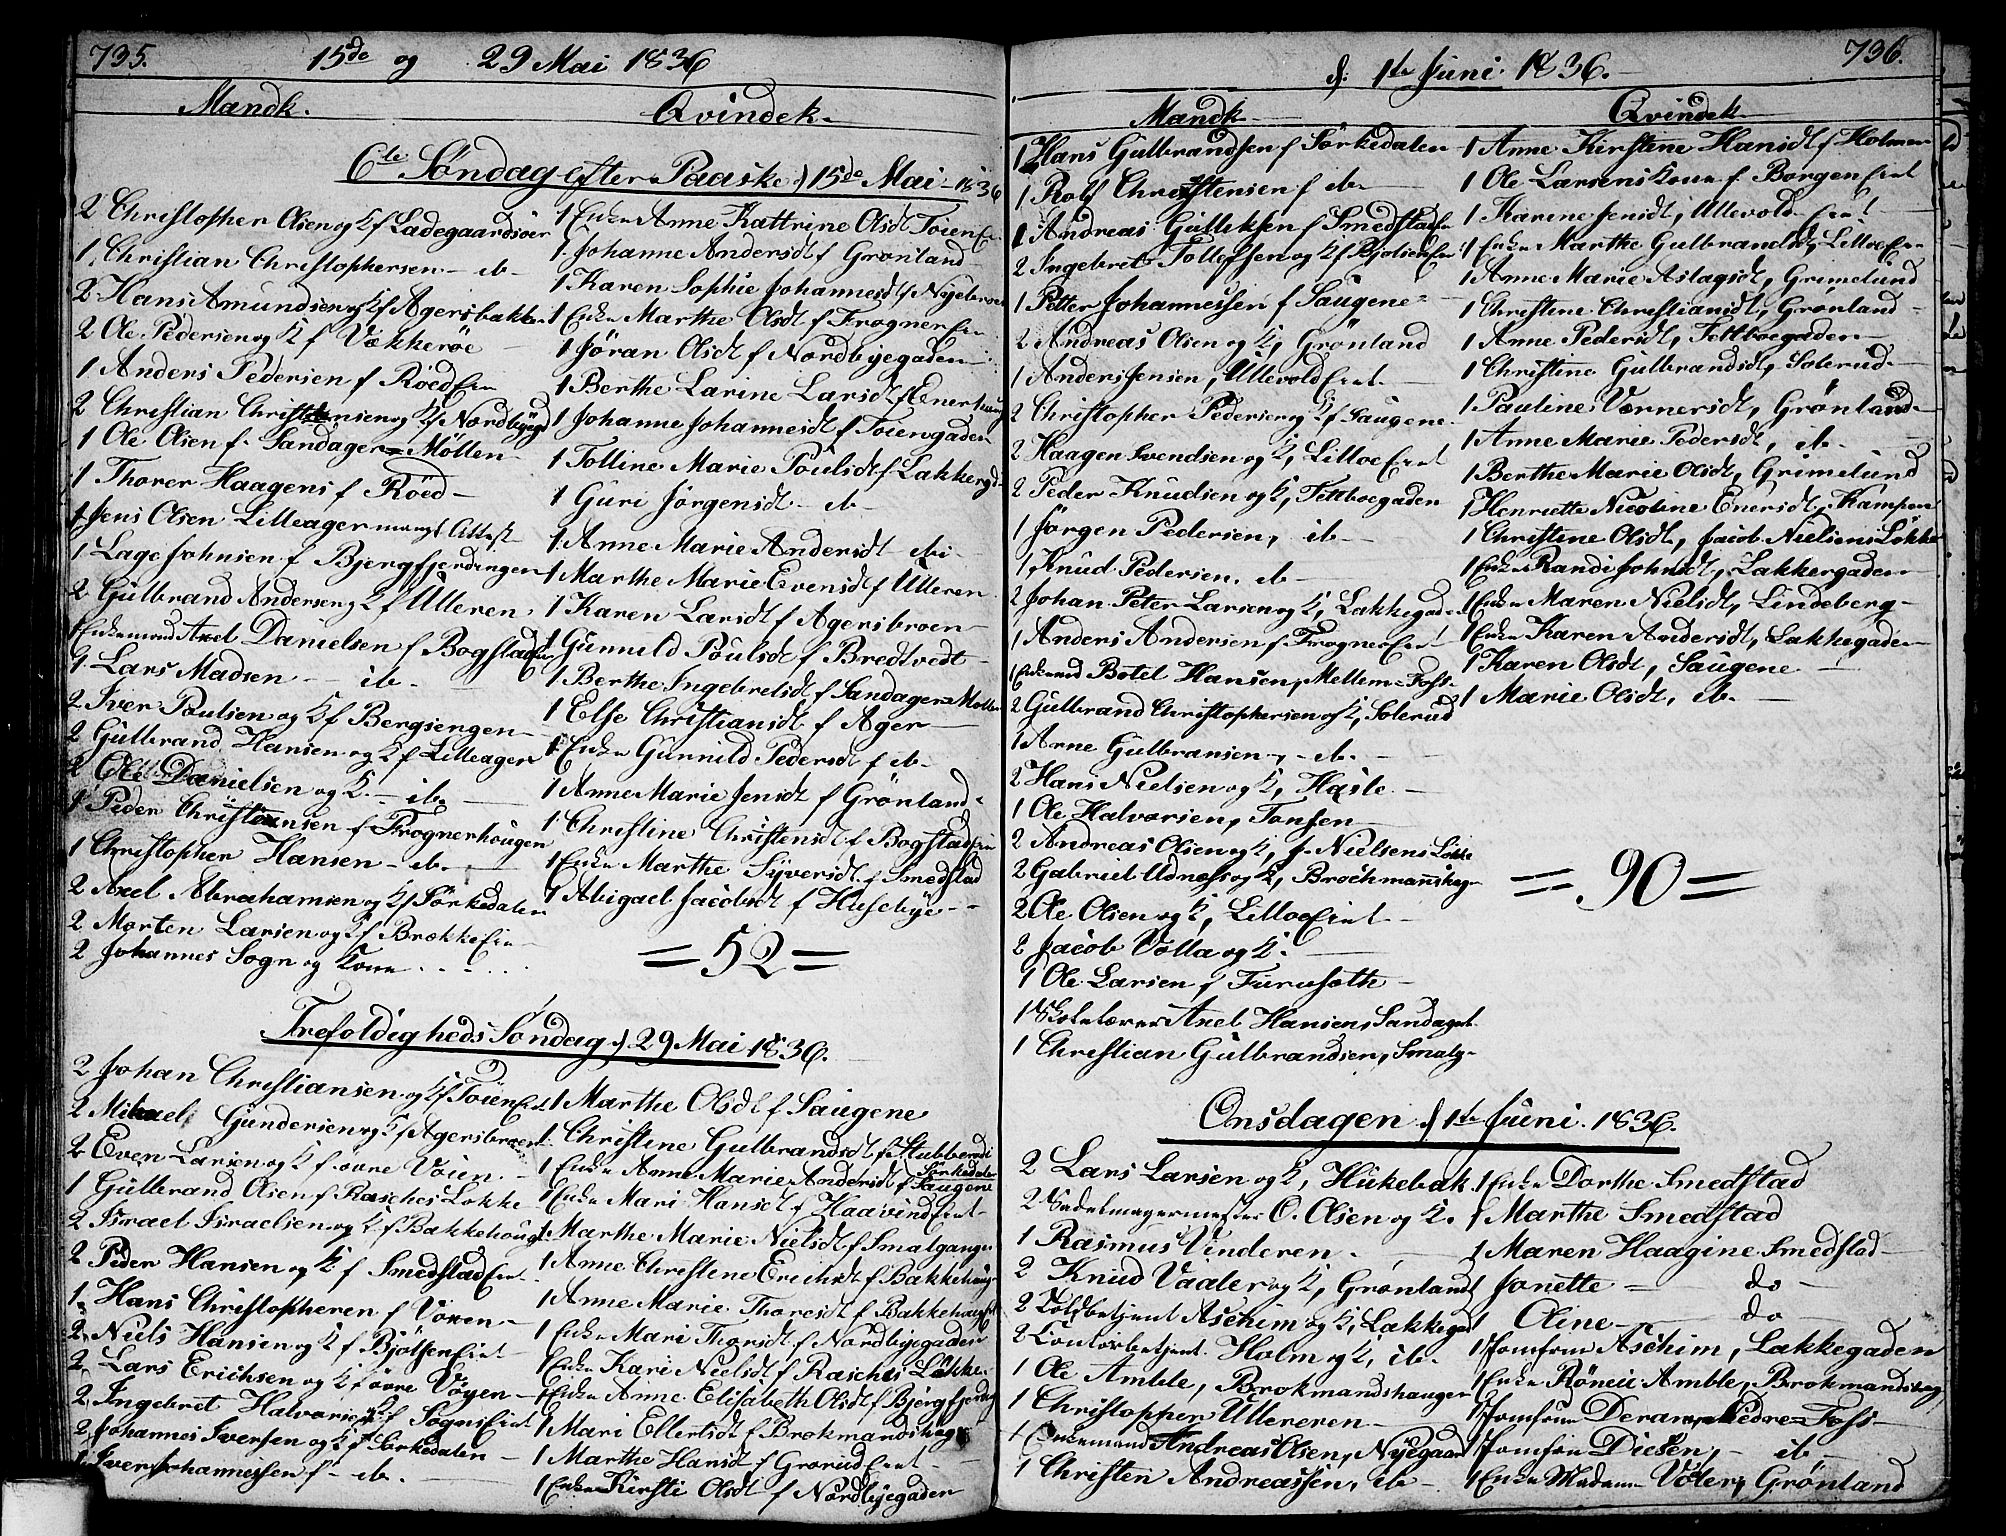 735.
15de og 29 Mai 1836
Mandk.
Qvindek.
6te Søndag efter Paaske d 15de Mai 1836
2 Christopher Olsen og K f Ladegaardsøen
1 Christian Christophersen - ib -
2 Hans Amundsen og K f Agersbakken
2 Ole Pedersen og K f Vækkerøe
1 Anders Pedersen f Røed
2 Christian Christensen og K f Nordbyegd
1 Ole Olsen f Sandager=Möllen
1 Thorer Haagens f Röed
1 Jens Olsen Lilleager mangl Attest
1 Lage Johnsen f Bjergfjerdingen
2 Gulbrand Andersen og K f Ulleren
1 Enkemand Axel Danielsen f Bogstad
1 Lars Madsen - ib -
2 Iver Poulsen og K f Bergsengen
2 Gulbrand Hansen og K f Lilleager
2 Ole Danielsen og K - ib -
1 Peder Christiansen f Frognerhougen
1 Christopher Hansen - ib -
2 Axel Abrahamsen og K f Sørkedalen
2 Morten Larsen og K f Brække
2 Johannes Sogn og Kone
1 Enke Anne Kattrine Olsdt Töien
1 Johanne Andersdt f Grønland
1 Karen Sophie Johannesdt f Nyebroen
1 Enke Marthe Olsdt f Frogner
1 Jöran Olsdt f Nordbyegaden
1 Berthe Larine Larsdt f Enerhaug
1 Johanne Johannesdt f Töiengaden
1 Tolline Marie Poulsdt f Lakkergd
1 Guri Jörgensdt - ib -
1 Anne Marie Andersdt - ib -
1 Marthe Marie Evensdt f Ulleren
1 Karen Larsdt f Agersbroen
1 Gunnild Poulsdt f Bredtvedt
1 Berthe Ingebretsdt f Sandager=Möllen
1 Else Christiansdt f Ager
1 Enke Gunnild Pedersdt f ib -
1 Anne Marie Jensdt f Grönland
1 Christine Christensdt f Bogstad
1 Enke Marthe Syversdt f Smedstad
1 Abigael Jacobsdt f Husebye
= 52 =
Trefoldigheds Søndag d 29 Mai 1836.
2 Johan Christiansen og K f Töien
2 Mikael Gundersen og K f Agersbroen
2 Even Larsen og K f övre Voien
1 Gulbrand Olsen f Rasches Løkke
2 Israel Israelsen og K f Bakkehoug
2 Peder Hansen og K f Smedstad
1 Hans Christophersen f Voien
2 Niels Hansen og K f Bjölsen
2 Lars Erichsen og K f övre Vöyen
2 Ingebret Halvorsen f Sogn
2 Johannes Iversen og K f Sørkedalen
1 Iver Johannessen f - ib.
1 Marthe Olsdt f Saugene
1 Christine Gulbrandsdt f Stubberud Sørkedalen
1 Enke Anne Marie Andersdt f Saugene
1 Enke Mari Hansdt f Haavind
1 Marthe Marie Nielsdt f Smalgangen
1 Anne Christine Erichsdt f Bakkehaug
1 Anne Marie Thoresdt f Bakkehaug
1 Enke Mari Thorsdt f Nordbyegaden
1 Enke Kari Nielsdt f Rasches Løkke
1 Enke Anne Elisabeth Olsdt f Bjergfjerding
1 Mari Ellertsdt f Brokmandshaug
1 Marthe Hansdt f Grorud
1 Enke Kirsti Olsdt f Nordbyegaden
736.
d. 1te Juni 1836.
Mandk
Qvindek
1 Hans Gulbrandsen f Sørkedalen
1 Rolf Christensen f ib -
1 Andreas Gulliksen f Smedstad
2 Ingebret Tollefsen og K f Bjølsen
1 Petter Johannessen f Saugene
2 Andreas Olsen og K, Grönland
1 Anders Jensen, Ullevold
2 Christopher Pedersen og K f Saugene
2 Haagen Svendsen og K, Lilloe
2 Peder Knudsen og K, Fettboegaden
1 Jörgen Pedersen, ib -
1 Knud Pedersen. ib -
2 Johan Peter Larsen og K, Lakkegaden
1 Anders Andersen f Frogner
1 Enkemand Botel Hansen, Mellem=Foss
2 Gulbrand Christophersen og K, Solerud
1 Arne Gulbransen, - ib -
2 Hans Nielsen og K, Hasle
1 Ole Halvorsen, Tonsen
2 Andreas Olsen og K, J. Nielsens Løkke
2 Gabriel Udnæss og K, Brochmannshaug
2 Ole Olsen og K, Lilloe
2 Jacob Volla og K.
1 Ole Larsen f Furusæth
1 Skolelærer Axel Hansen, Sandager
1 Christian Gulbrandsen, Smalg
1 Anne Kirstine Hansdt f Holmen
1 Ole Larsens Kone f Borgen
1 Karine Jensdt, Ullevold
1 Enke Marthe Gulbrandsdt, Lilloe
1 Anne Marie Aslagsdt, Grimelund
1 Christine Christiansdt, Grønland
1 Anne Pedersdt, Fettboegaden
1 Christine Gulbrandsdt, Solerud
1 Pauline Vernersdt, Grönland
1 Anne Marie Pedersdt, ib -
1 Berthe Marie Olsdt, Grimelund
1 Henriette Nicoline Enersdt, Kampen
1 Christine Olsdt, Jacob Nielsens Løkke
1 Enke Randi Johnsdt, Lakkergaden
1 Enke Maren Nielsdt, Lindeberg
1 Enke Karen Andersdt, Lakkegaden
1 Karen Olsdt, Saugene
1 Marie Olsdt, ib -
= 90 =
Onsdagen d 1te Juni 1836.
2 Lars Larsen og K, Hukebak
2 Sadelmagermester O. Olsen og K.
1 Rasmus Vinderen
2 Knud Vaaler og K, Grønland
2 Toldbetjent Aschim og K, Lakkegad
2 Contorbetjent Holm og K, ib.
1 Ole Amble, Brokmandshaugen
1 Christopher Ulleren
1 Enkemand Andreas Olsen, Nyegaar
1 Christen Andreassen, ib -
1 Enke Dorthe Smedstad
1 Marthe Smedstad
1 Maren Haagine Smedstad
1 Janette - do -
1 Oline - do -
1 Jomfrue Aschim, Lakkegaden
1 Enke Amble, Brokmandshaug
1 Jomfrue Nedre=Foss
1 Jomfrue Diesen, - ib -
1 Enke Madame Voler, Grønland